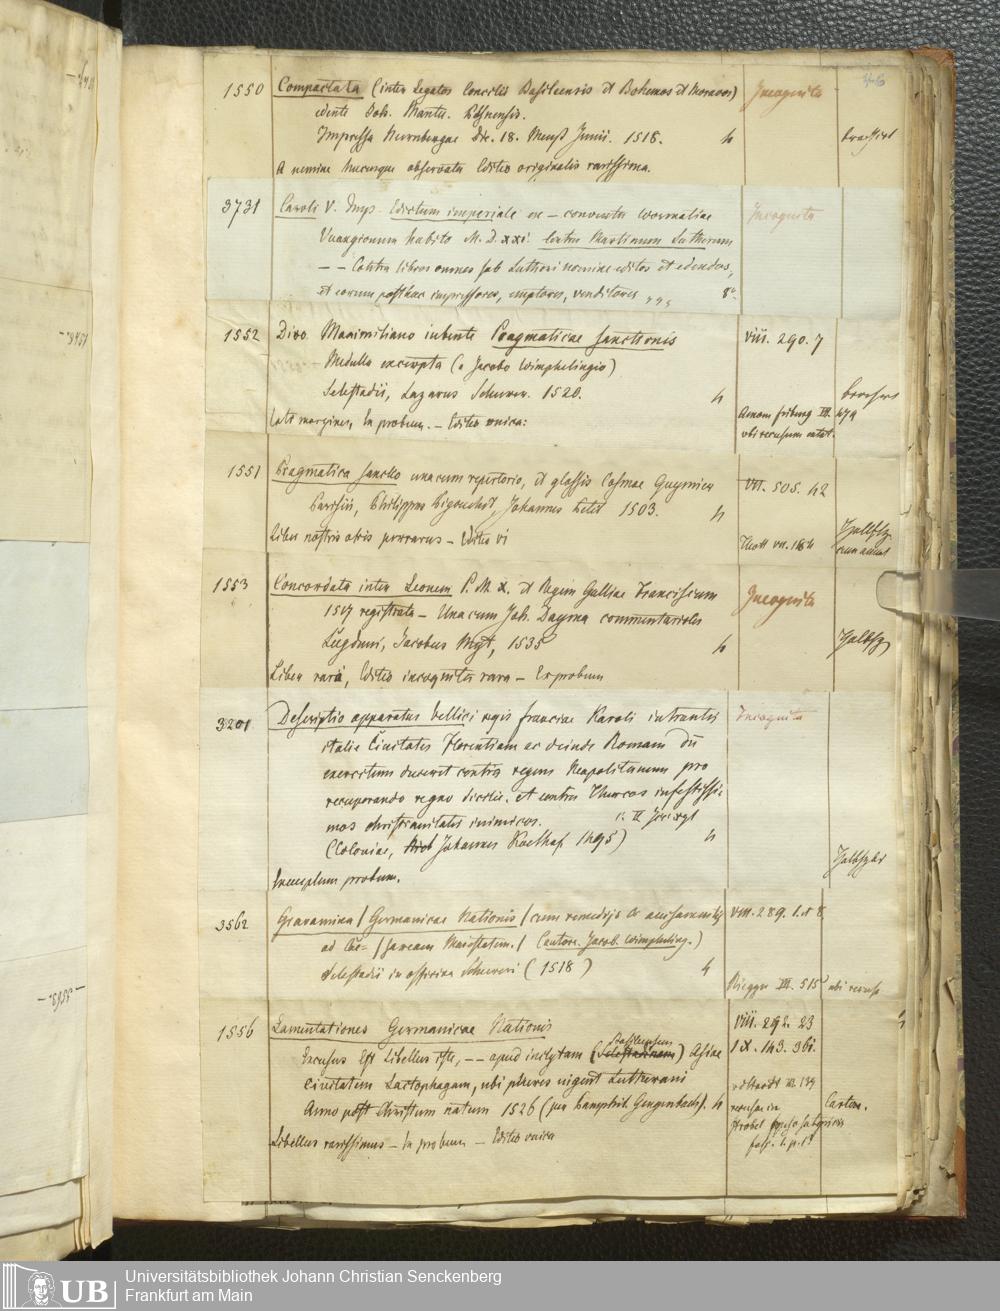 346
1550 Compactata (inter Legatos Concilii Basileensis et Bohemos et Moravos) Incognita
edente Joh.
Impressa Nurnbergae Die. 18. Mensis Junii. 1518. 4 broschirt
A nemine hucusque observata Editio originalis rarissima.
3731 Caroli V. Imp. Edictum imperiale in – conventu Wormatiae Incognita
Vuangionum habito M.D.xxi. contra Martinum Lutherum
– – Contra libros omnes sub Lutheri nomine editos et edendos,
et eorum posthac impressores, emptores, venditores 8°
1552 Divo Maximiliano iubente Pragmaticae sanctionis VIII. 290. 7
Medulla excerpta (a Jacobo Wimphelingio)
Selestadii, Lazarus Schurer. 1520. 4
Lati margines, Ex probum. – Editio unica:
ubi recusum extat.
1551 Pragmatica sanctio una cum repertorio, et glossis Cosmae Guymier VII. 505. 42
Parisii, Philippus Pigouchet, Johannes Petit 1503. 4
Liber nostris oris perrarus – Editio vi
1553 Concordata inter Leonem P. M. X. et Regem Galliae Franciscum Incognita
1517 registrata – Una cum Joh. Dayma commentariolis
Lugduni, Jacobus Myt, 1535 4 Halbfz
Liber rarus, Editio incognita rara – Ex probum
3201 Descriptio apparatus bellici regis franciae Karoli intrantis Incognita
italie Civitates Florentiam ac deinde Romam dum
exercitum duceret contra regem Neapolitanum pro
recuperando regno Sicilie. et contra Thurcos infestissi-
mos christianitatis inimicos.
(Coloniae, Johannes Koelhof 1495) 4
Exemplum probum.
3562 Gravamina / Germanicae Nationis / cum remedijs & auisamentis VIII. 289. 1. et 8.
ad Cae= / saream Maiestatem. / (autore Jacob. Wimpheling.)
Selestadii in officina Schureri (1518) 4
Riegger III. 515 ubi recusa
1556 Lamentationes Germanicae Nationis VIII. 292. 23
Excusus Est Libellus iste, – – apud inclytam (Basileensem) Asiae IX. 143. 361.
Civitatem Lactophagam, ubi plures uigent Lutherani
Anno post Christum natum 1526 (per Pamphil. Gengenbach). 4 recusa in Carton.
Strobel
Libellus rarissimus – Ex probum – Editio unica
UB
Universitätsbibliothek Johann Christian Senckenberg
Frankfurt am Main